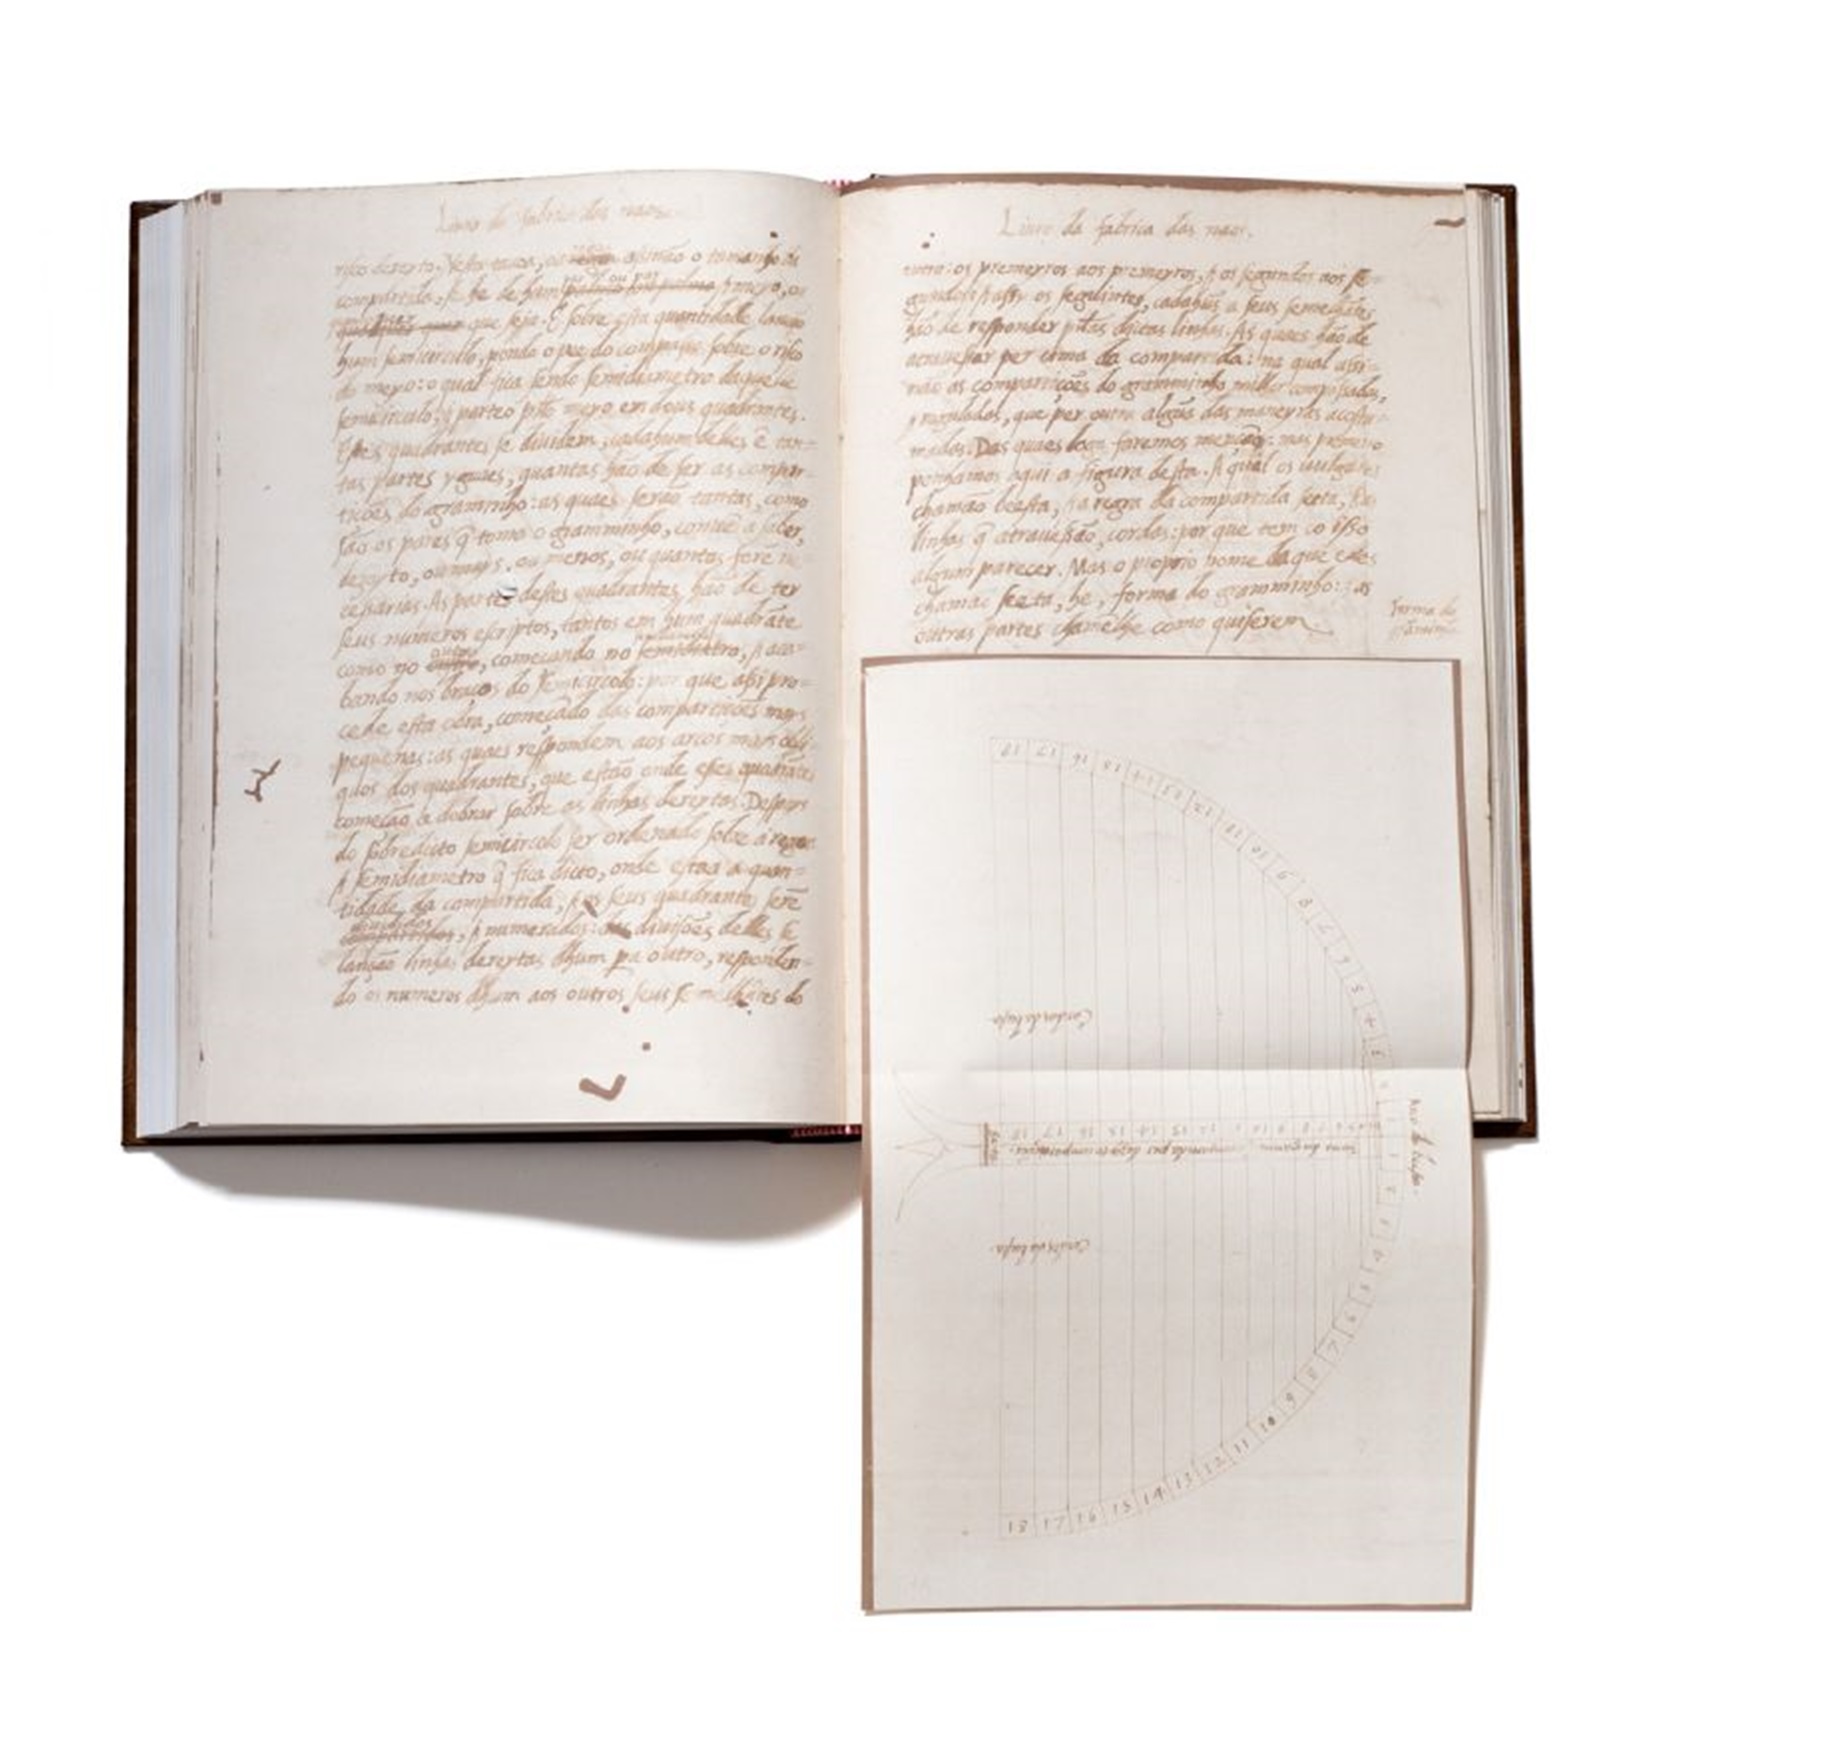 Livro da fabrica das naos.
risco derecto. Nesta assinão o tamanho da
compartida, se he de hum meyo, ou
que seja. E sobre esta quantidade lanção
hum semicirculo, pondo o pee do compasso sobre o risco
do meyo: o qual fica sendo semidiametro daquelle
semicirculo, & parteo em dous quadrantes.
Estes quadrantes se dividem, cadahum delles ẽ tan-
tas partes yguaes, quantas hão de ser as compar-
tições do gramminho: as quaes serão tantas, como
são os pares q̃ toma o gramminho, convẽ a saber,
dezoyto, ou mays, ou menos, ou quantas forẽ ne-
cessarias. As partes destes quadrantes hão de ter
seus numeros escriptos, tantos em hum quadrãte
como no outro, começando no semidiametro, & aca-
bando nos braços do semicirculo: por que assi pro-
cede esta obra, começãdo das compartições mays
pequenas: as quaes respondem aos arcos mays obli-
quos dos quadrantes, que estão onde esses quadrãtes
começão a dobrar sobre as linhas derectas. Despoys
do sobredicto semicirculo ser ordenado sobre a regra
& semidiametro q̃ fica dicto, onde estaa a quan-
tidade da compartida, & os seus quadrantes serẽ
divididos
compartidos, & numerados: das divisões delles se
lanção linhas derectas dhum pa outro, responden-
do os numeros dhum aos outros seus semelhãtes do
Livro da fabrica das naos.
outro: os premeyros aos premeyros, & os segundos aos se-
gundos: & assy os seguintes, cadahũs a seus semelhãtes
hão de responder dictas linhas. As quaes hão de
atravessar per cima da compartida: na qual assi-
não as compartições do gramminho milhor compassadas,
& numeladas, que per outra algũa das maneyras acostu-
madas. Das quaes logo faremos menção: mas primeiro
ponhamos aqui a figura desta. A qual os
chamão beesta, & a regra da compartida seeta, & as
linhas q̃ atravessão, cordas: por que tem co isso
algum parecer. Mas o proprio nome da que elles
chamão seeta, he, forma do gramminho: as
outras partes chamẽlhe como quiserem.
forma do
grãmin.
18 17 16 15 14 13 12 11 10 9 8 7 6 5 4 3 2 1
Cordas da besta.
Arco da beesta.
18 17 16 15 14 13 12
Cordas da besta.
1 2 3 4 5 6 7 8 9 10 11 12 13 14 15 16 17 18